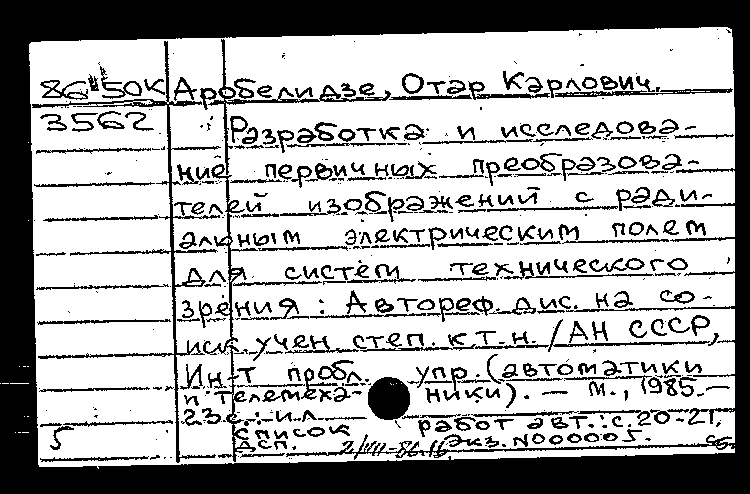 86-50К Аробелидзе, Отар Карлович.
3562 Разработка и исследова-
ние первичных преобразова-
телей изображений с ради-
альным электрическим полем
для систем технического
зрения : Автореф. дис. на со-
иск. учен. степ. к.т.н. / АН СССР,
Ин-т пробл. упр. (автоматики
и телемеха- ники). — М., 1985.—
23 с. : ил
Список работ авт.: с. 20-21.
5 ДСП. Экз. N000005.
2/VII-86.